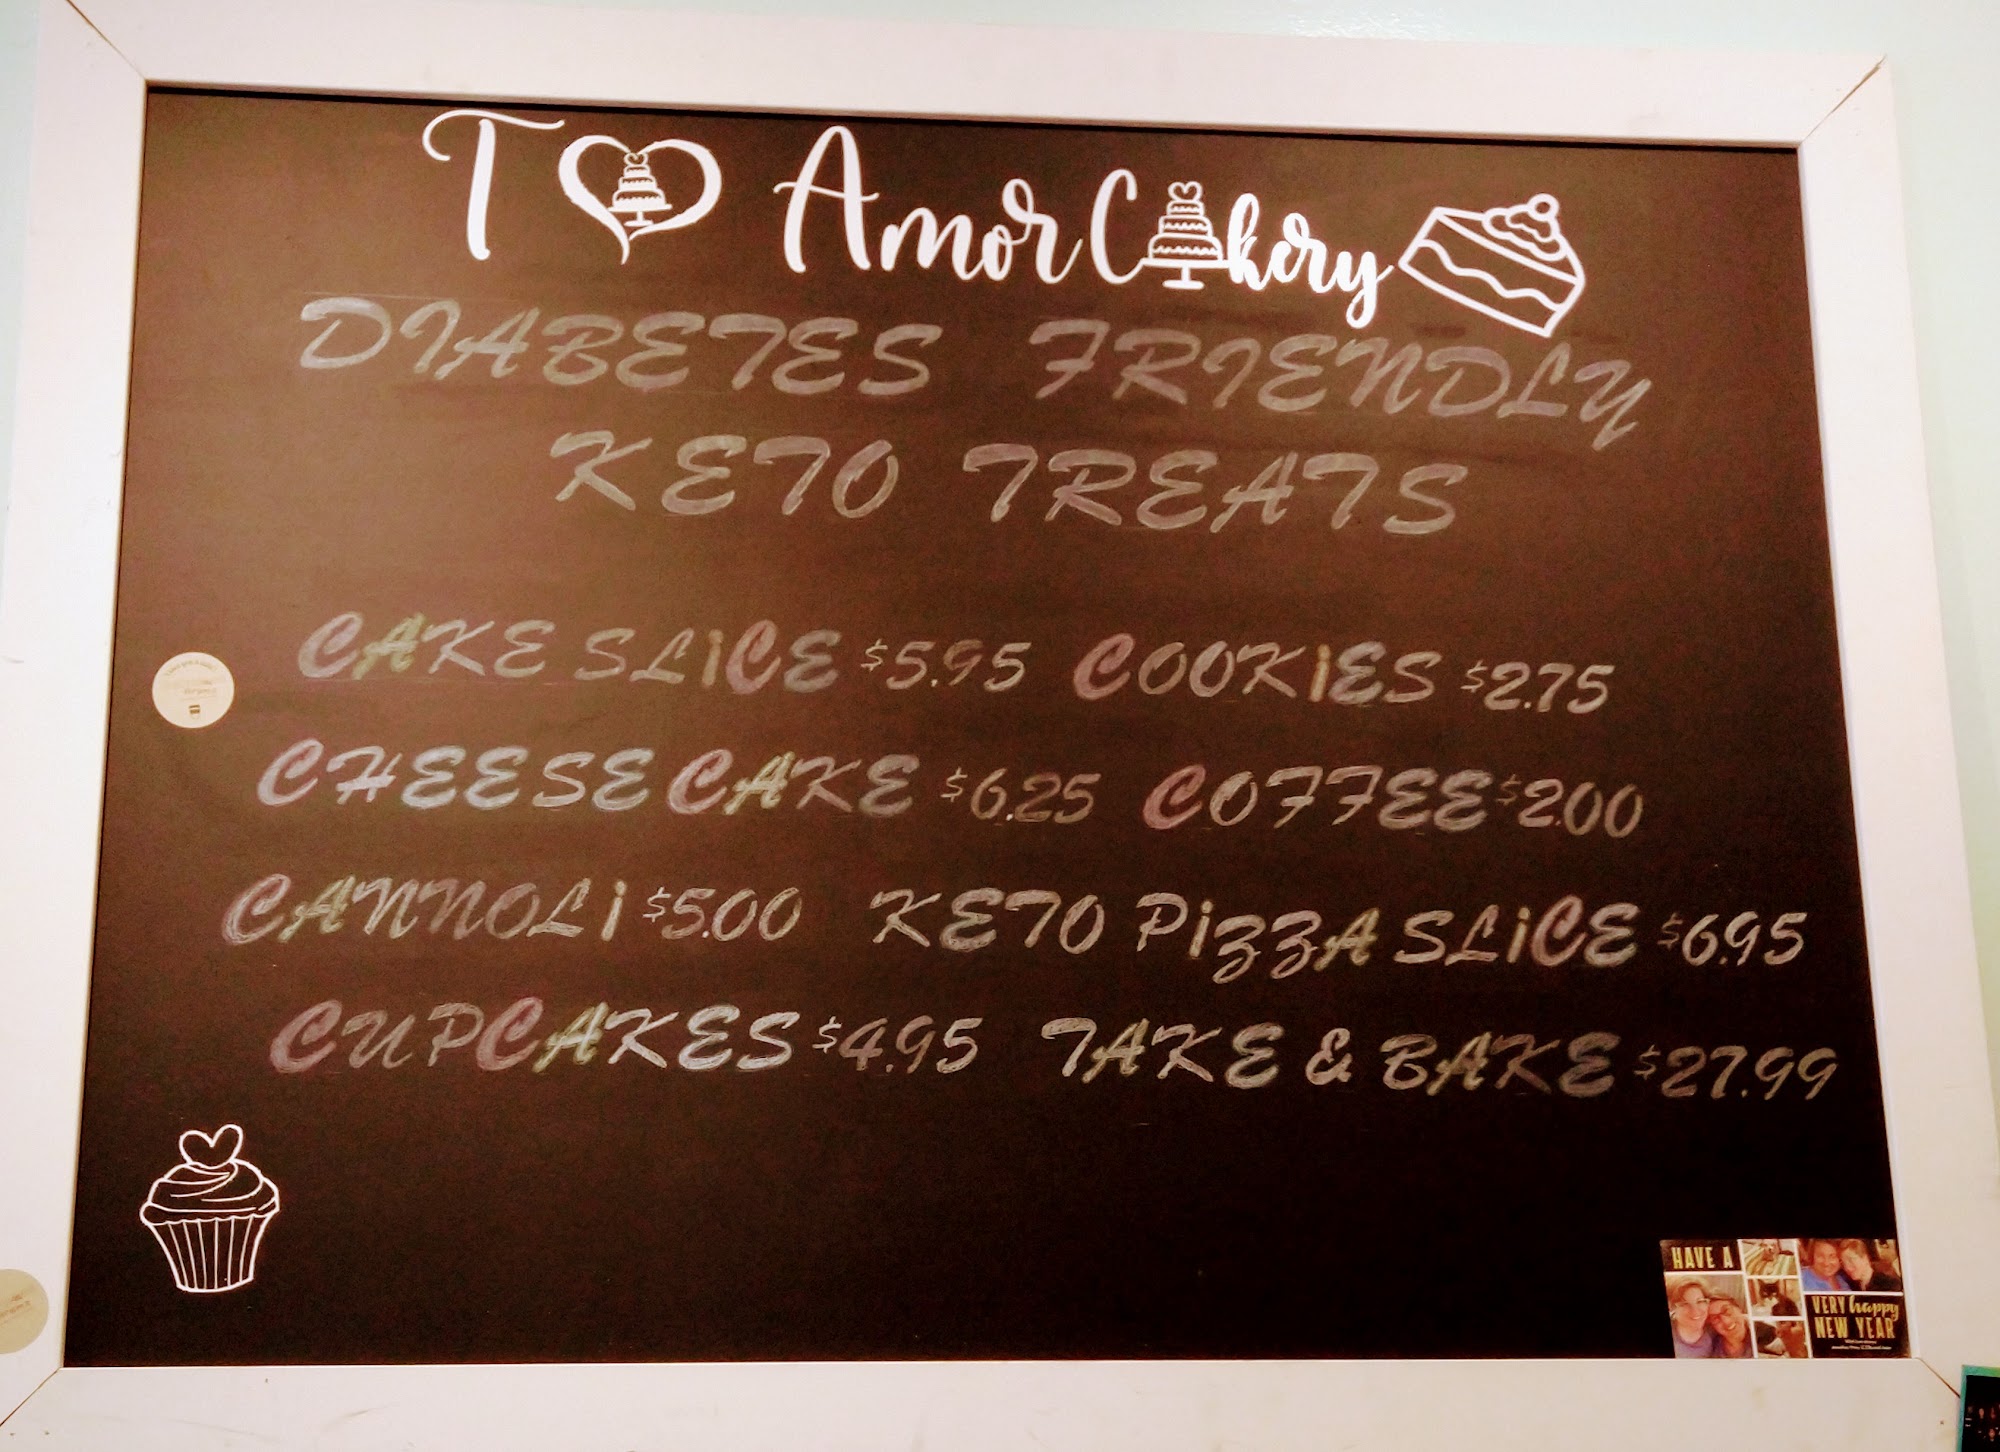 To Amor Cakery
DIABETES FRIENDLY
KETO TREATS
CAKE SLiCE $5.95 COOKiES $2.75
CHEESECAKE $6.25 COFFEE $2.00
CANNOLi $5.00 KETO PiZZA SLiCE $6.95
CUPCAKES $4.95 TAKE & BAKE $27.99
HAVE A
VERY happy
NEW YEAR